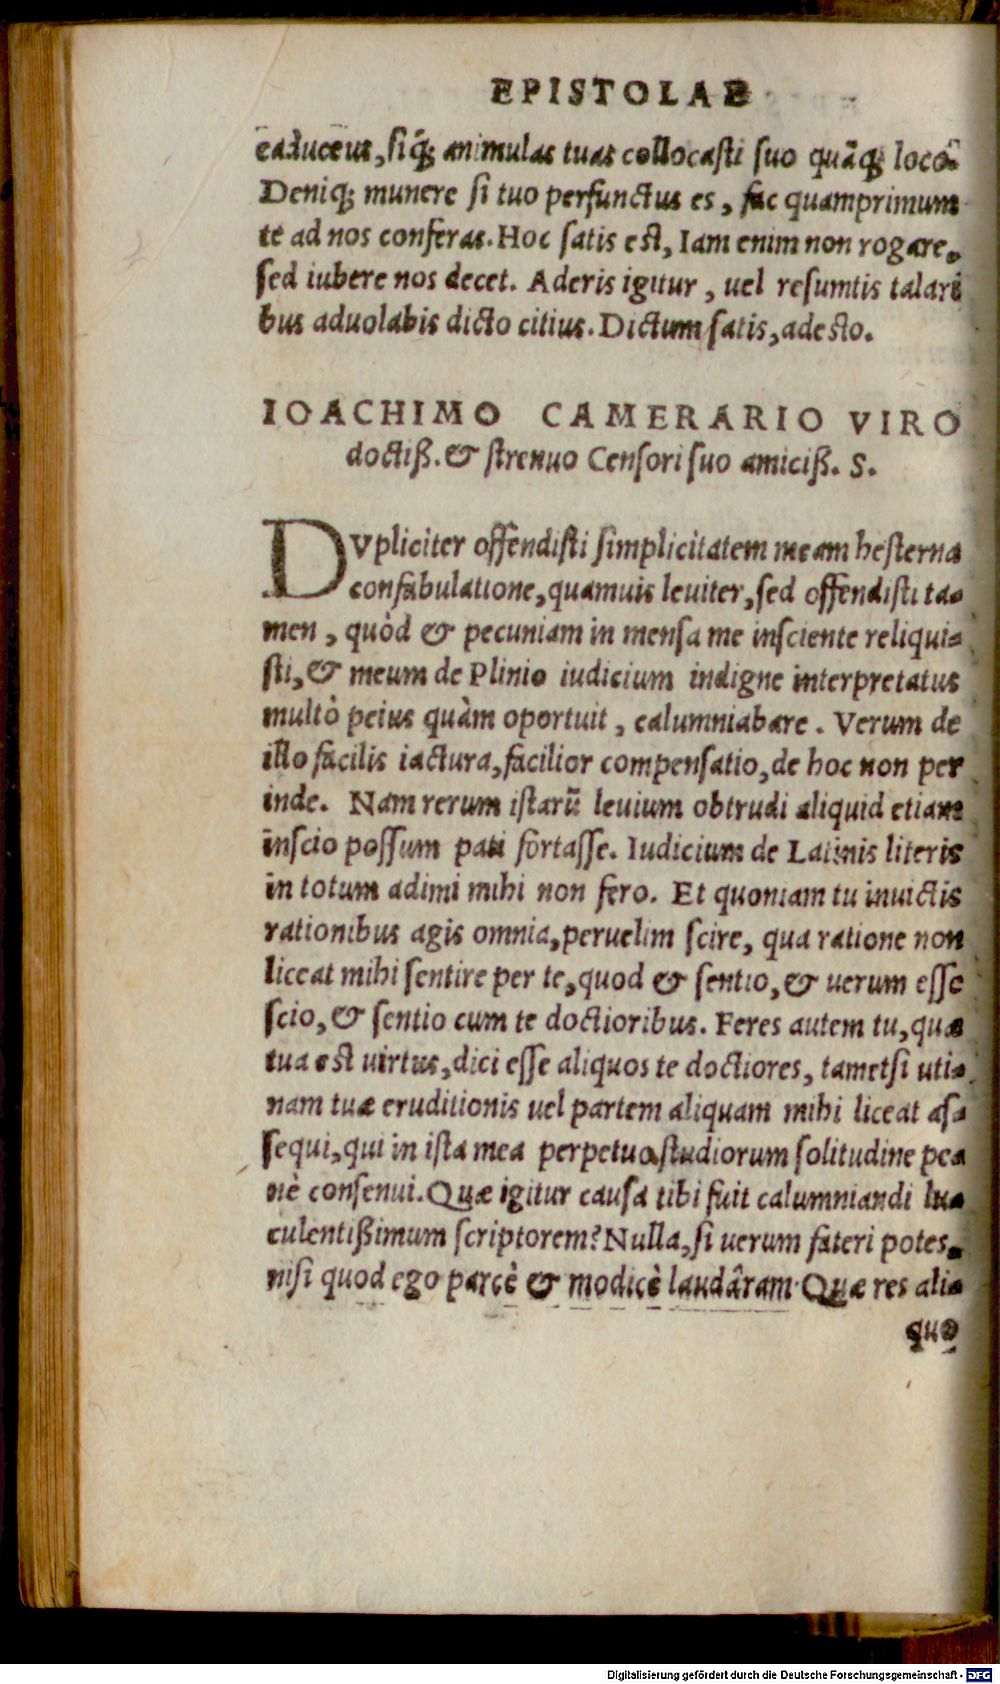 EPISTOLAE
caduceus, siq́; animulas tuas collocasti suo quãq; loco.
Deniq; munere si tuo perfunctus es, fac quamprimum
te ad nos conferas. Hoc satis est, Iam enim non rogare,
sed iubere nos decet. Aderis igitur, uel resumtis talari
bus aduolabis dicto citius. Dictum satis, adesto.
IOACHIMO CAMERARIO VIRO
doctiß. & strenuo Censori suo amiciß. S.
DVpliciter offendisti simplicitatem meam hesterna
confabulatione, quamuis leuiter, sed offendisti ta-
men, quòd & pecuniam in mensa me insciente reliqui-
sti, & meum de Plinio iudicium indigne interpretatus
multò peius quàm oportuit, calumniabare. Verum de
illo facilis iactura, facilior compensatio, de hoc non per
inde. Nam rerum istarũ leuium obtrudi aliquid etiam
inscio possum pati fortasse. Iudicium de Latinis literis
in totum adimi mihi non fero. Et quoniam tu inuictis
rationibus agis omnia, peruelim scire, qua ratione non
liceat mihi sentire per te, quod & sentio, & uerum esse
scio, & sentio cum te doctioribus. Feres autem tu, quæ
tua est uirtus, dici esse aliquos te doctiores, tametsi uti-
nam tuæ eruditionis uel partem aliquam mihi liceat as-
sequi, qui in ista mea perpetua studiorum solitudine pea
nè consenui. Quæ igitur causa tibi fuit calumniandi lu-
culentißimum scriptorem? Nulla, si uerum fateri potes,
nisi quod ego parcè & modicè laudâram. Quæ res ali-
quo
Digitalisierung gefördert durch die Deutsche Forschungsgemeinschaft - DFG